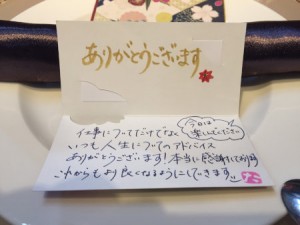 ありがとうございます
今日は
楽しんでください
仕事についてだけでなく
いつも人生についてのアドバイス
ありがとうございます！本当に感謝しております
これからもより良くなるようにしていきます